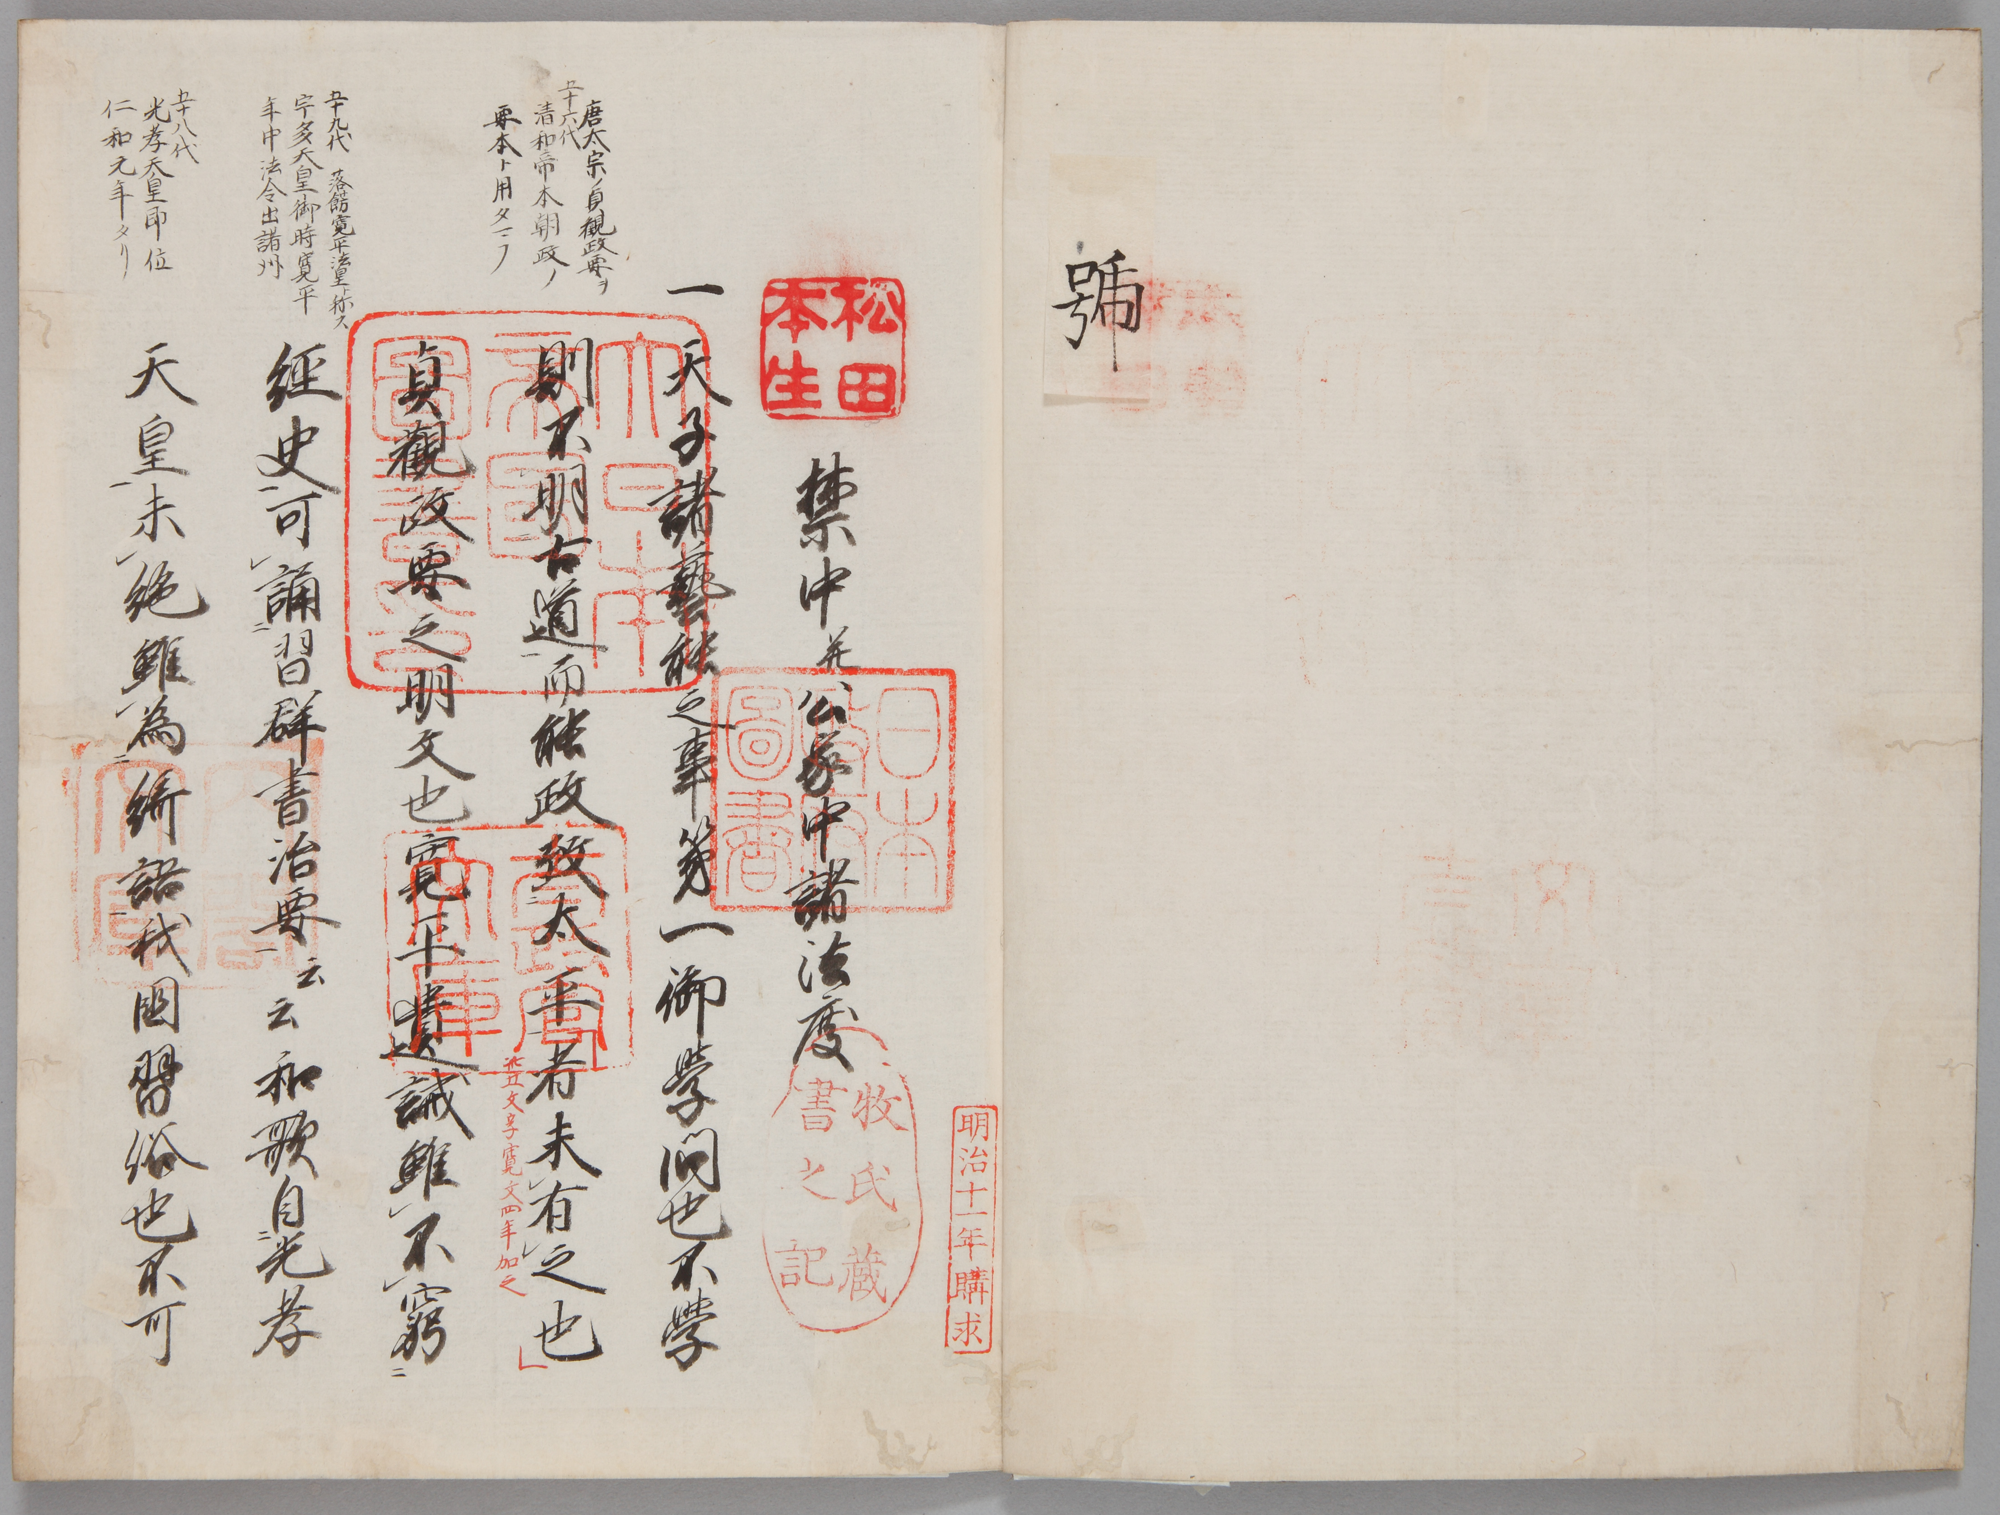 號
明治十一年購求
松田
本生
牧氏蔵
書之記
日本
政府
圖書
禁中并公家中諸法度
一天子諸藝能之事第一御學問也不學
則不明古道而能政致太平者未有之也
貞觀政要之明文也寛平遺誡雖不窮
經史可誦習群書治要云云和歌自光孝
天皇未絶雖為綺語我國習俗也不可
唐太宗ノ貞觀政要ヲ
五十六代
清和帝本朝政ノ
要本ト用タマフ
五十九代 落餝寛平法皇ト称ス
宇多天皇御時寛平
年中法令出諸州
五十八代
光孝天皇即位
仁和元年タリ
大日本
帝國
圖書之印
文字寛文四年加之
文庫
内閣
文庫